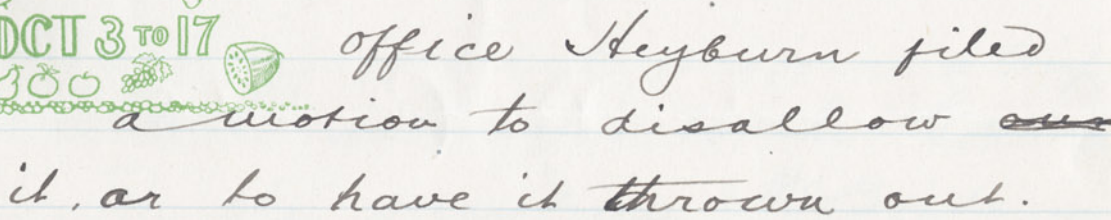 OCT 3 TO 17
office Heyburn filed
a motion to disallow our
it, or to have it thrown out.